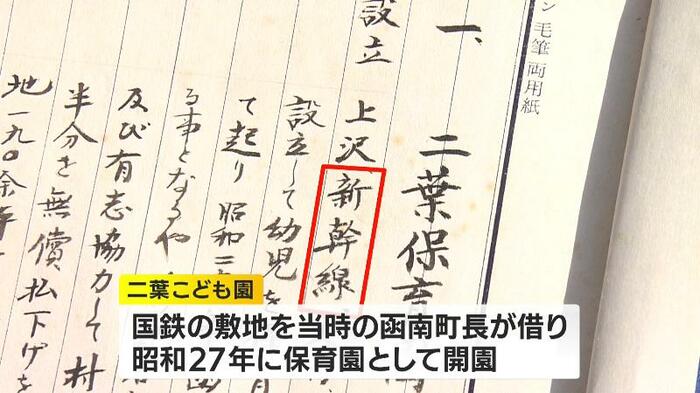 ン 毛筆両用紙
一、二葉保育
設立 上沢新幹線
設立して幼児を
て起り 昭和二
る事となるや
及び有志協力して村
半分を無償払下げを
地一九〇余
二葉こども園
国鉄の敷地を当時の函南町長が借り
昭和27年に保育園として開園